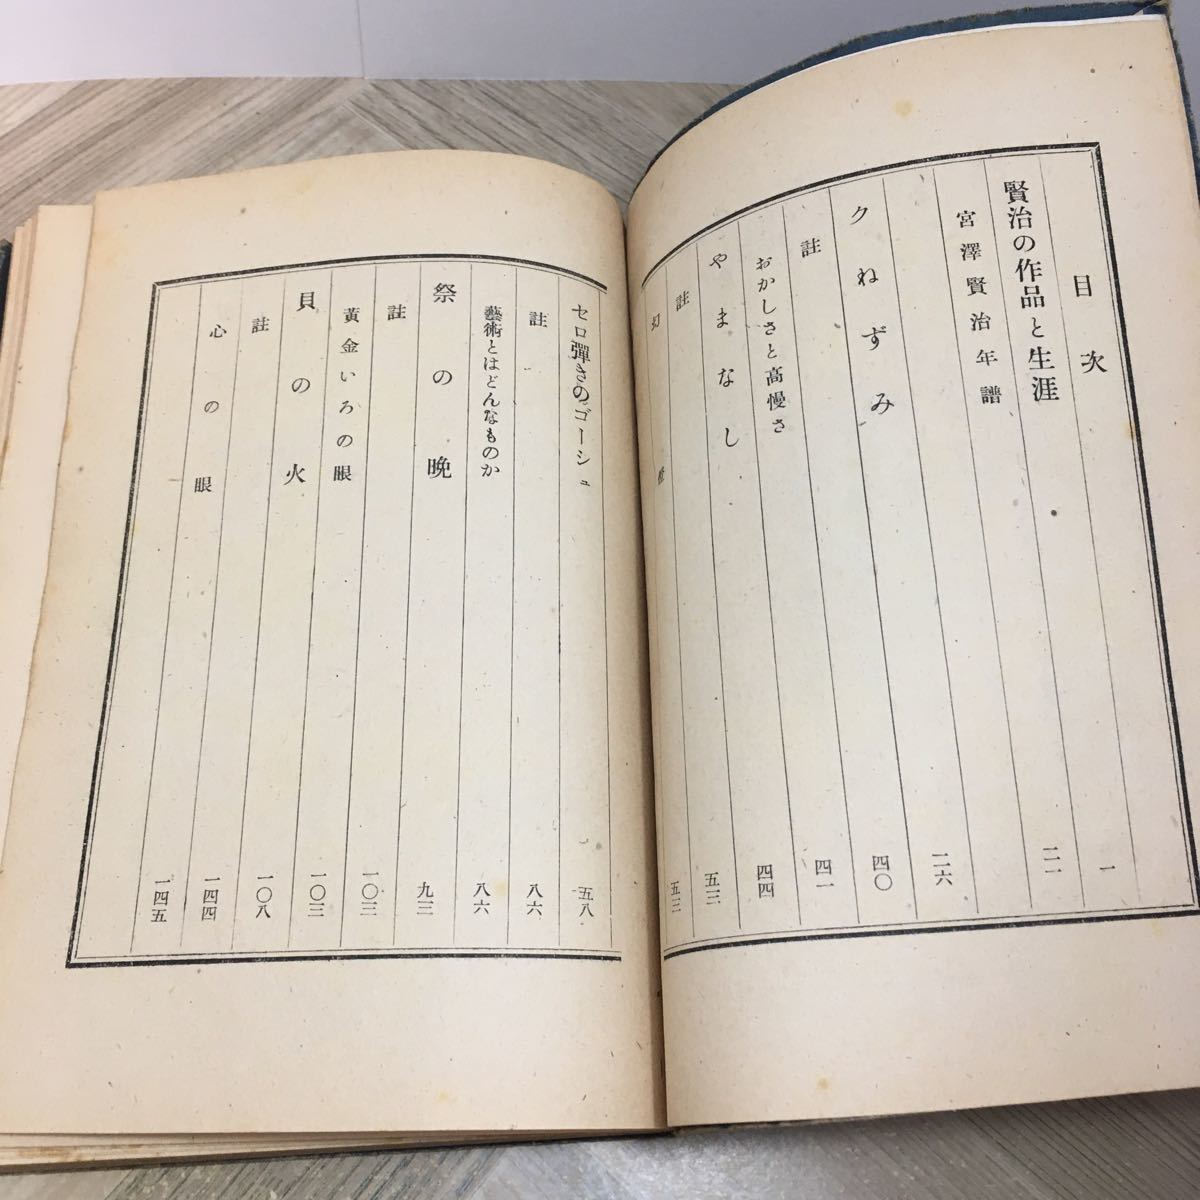 目次
賢治の作品と生涯 一
宮澤賢治年譜 二一
クねずみ 二六
註 四〇
おかしさと高慢さ 四一
やまなし 四四
註 五三
幻 五三
セロ彈きのゴーシュ 五八
註 八六
藝術とはどんなものか 八六
祭の晩 九三
註 一〇三
黃金いろの眼 一〇三
貝の火 一〇八
註 一四四
心の眼 一四五